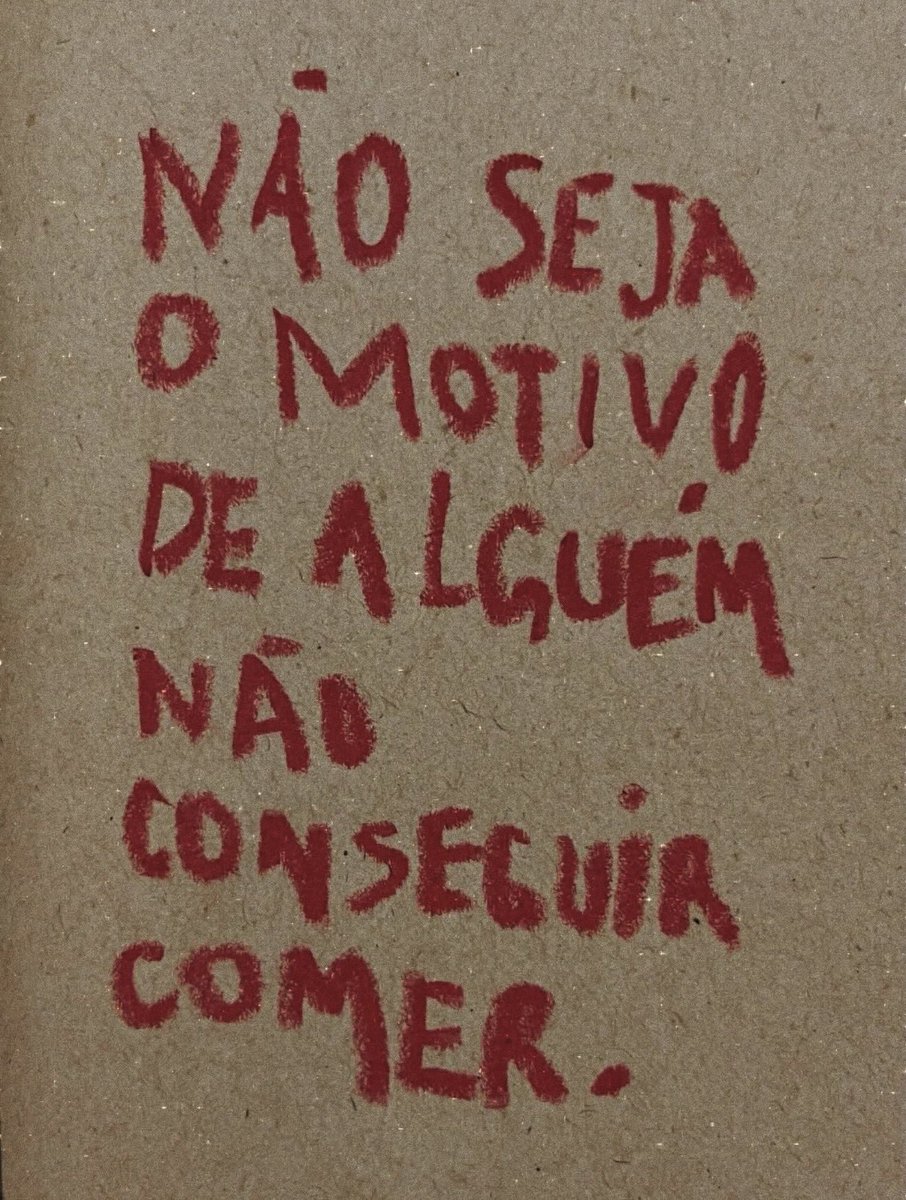 NÃO SEJA
O MOTIVO
DE ALGUÉM
NÃO
CONSEGUIR
COMER.